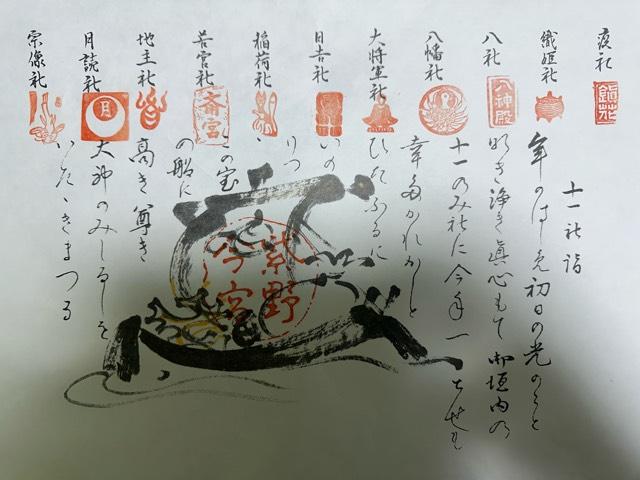 疫社
織姫社
八社
八幡社
大将軍社
日吉社
稲荷社
若宮社
地主社
月読社
宗像社
鎮花
八神殿
斎宮
月
十一社詣
年のはしめ初日の光のこと
明き浄き眞心もて御垣内の
十一のみ社に今年一とせも
幸多かれかしと
ひたふるに
いの
りつ
ゝ
この宝
の船に
高き尊き
大神のみしるしを
いたゝきまつる
紫野
今宮